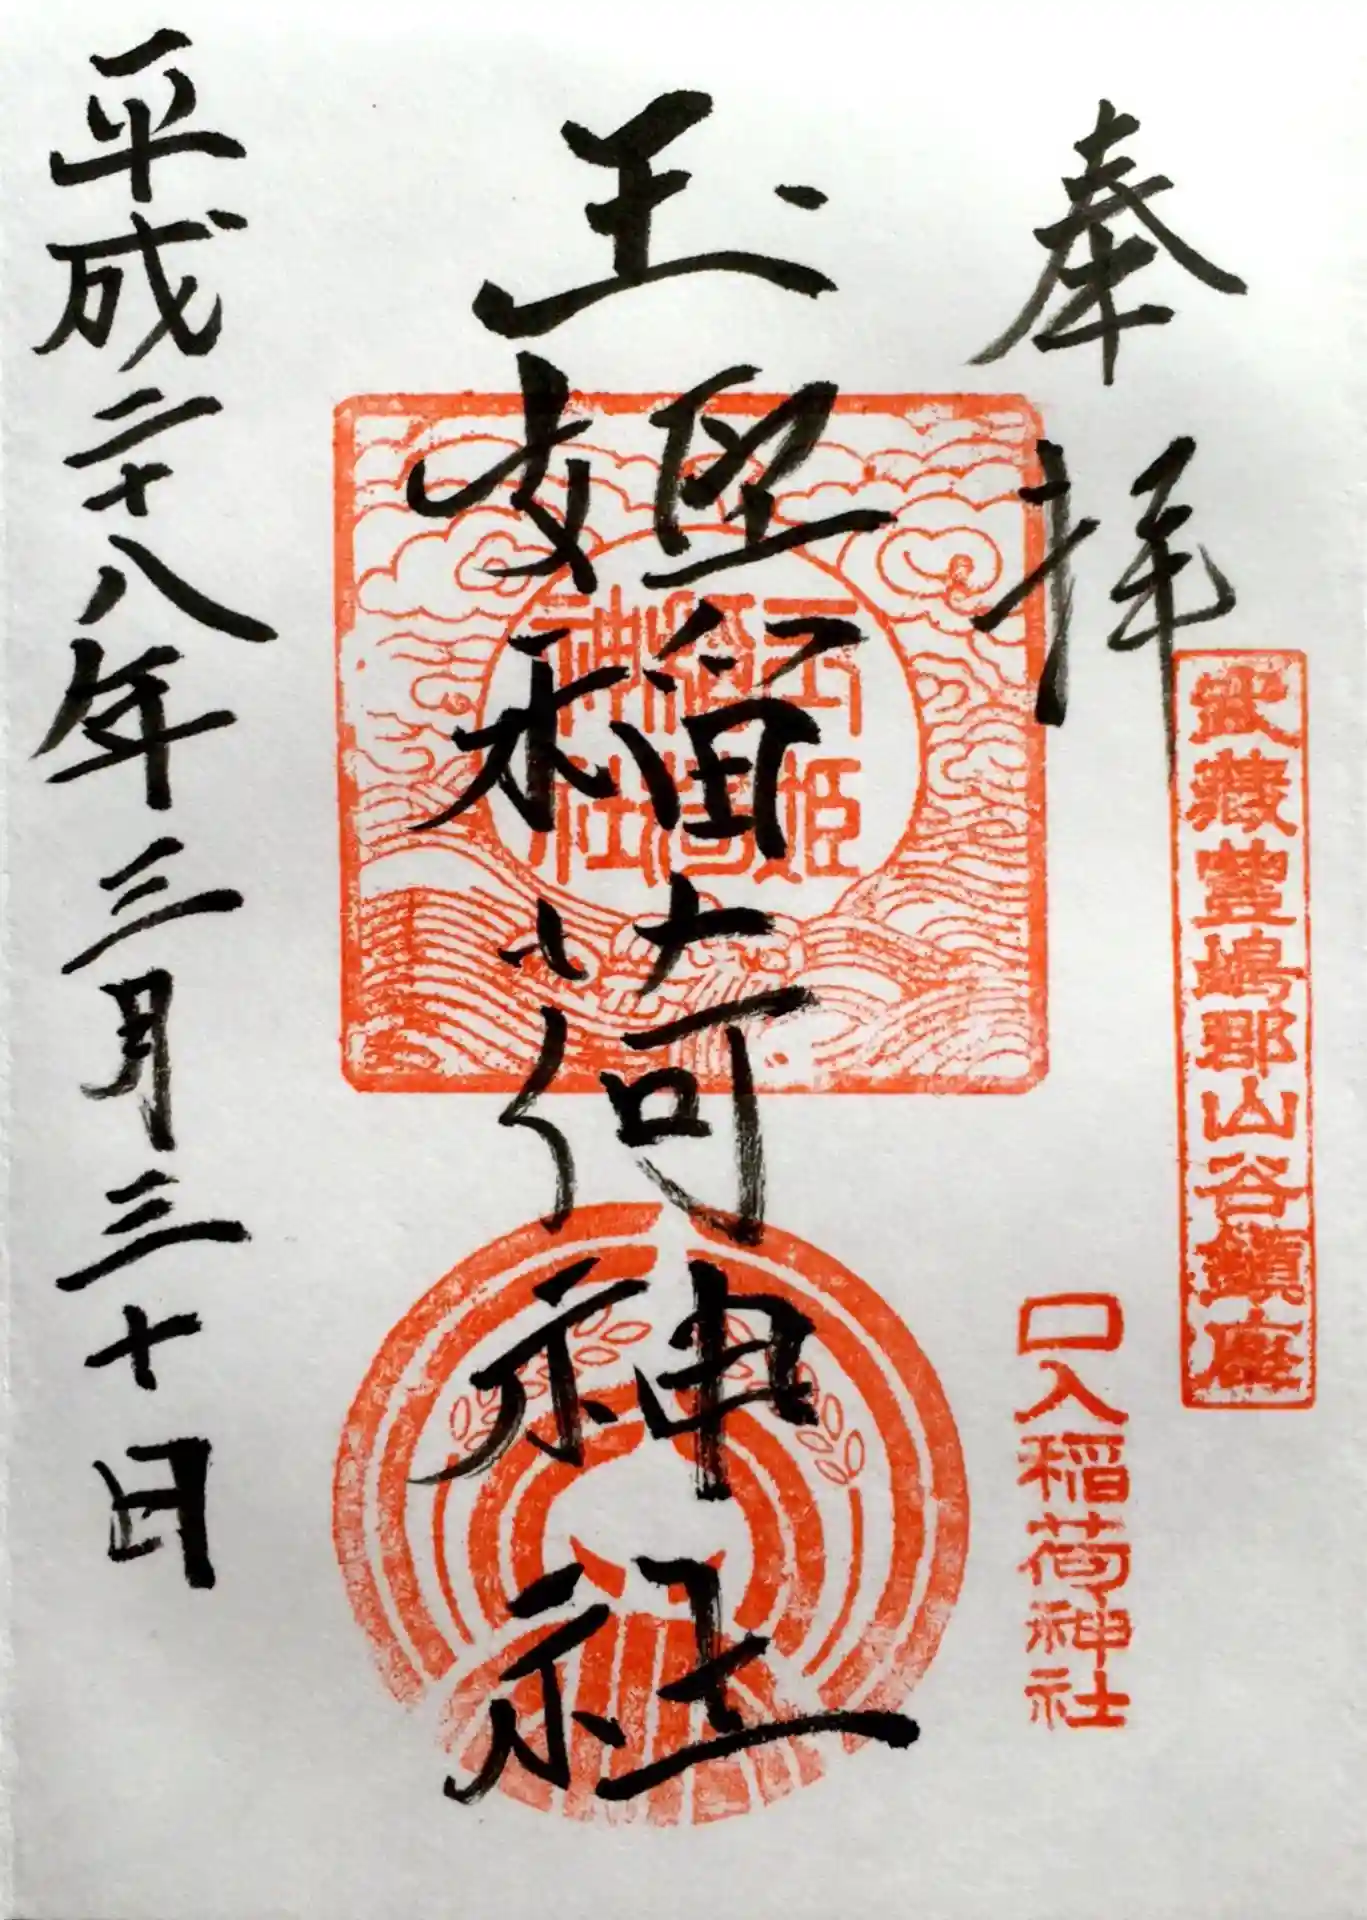 奉拝
武蔵豊嶋郡山谷鎮座
口入稲荷神社
玉姫稲荷神社
玉姫稲荷神社
平成二十八年三月三十日